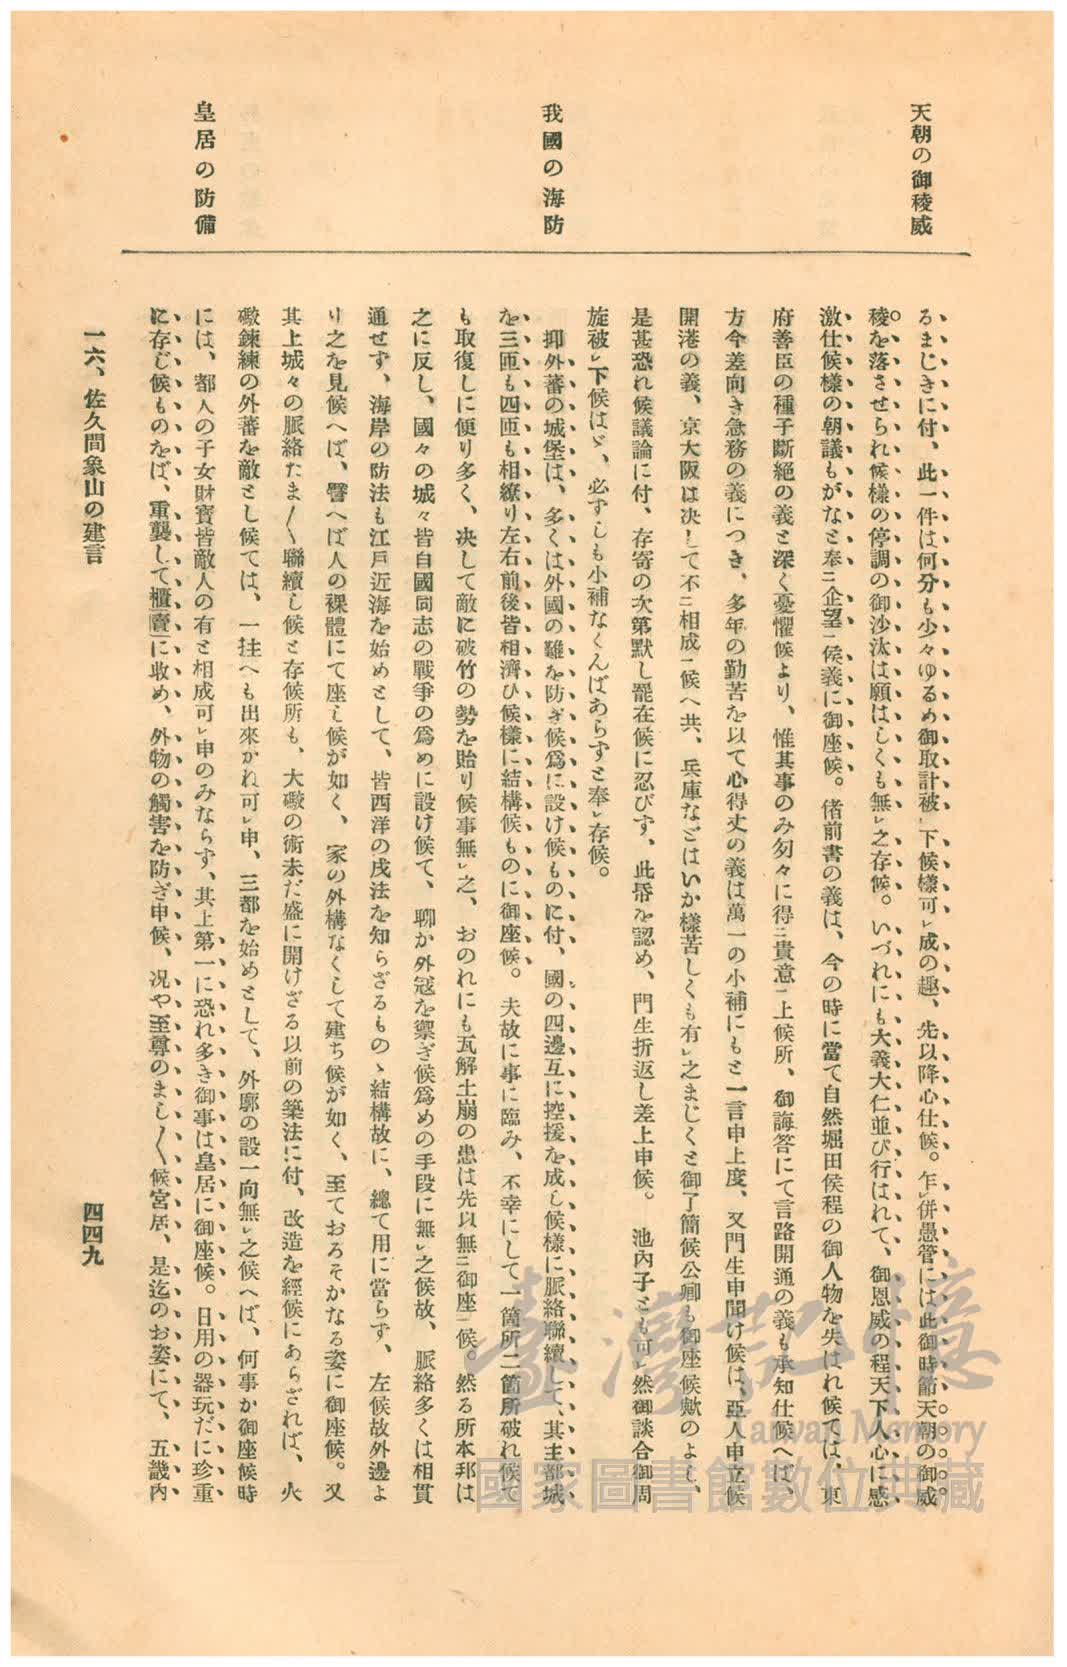 天朝の御稜威
我國の海防
皇居の防備
るまじきに付、此一件は何分も少々ゆるめ御取計被㆑下候樣可㆑成の趣、先以降心仕候。乍㆑併愚管には此御時節天朝の御威
稜を落させられ候樣の停調の御沙汰は願はしくも無㆑之存候。いづれにも大義大仁並び行はれて、御恩威の程天下人心に感
激仕候樣の朝議もがなと奉㆓企望㆒候義に御座候。偖前書の義は、今の時に當て自然堀田侯程の御人物を失はれ候ては、東
府善臣の種子斷絕の義と深く憂懼候より、惟其事のみ匆々に得㆓貴意㆒上候所、御誨答にて言路開通の義も承知仕候へば、
方今差向き急務の義につき、多年の勤苦を以て心得丈の義は萬一の小補にもと一言申上度、又門生申聞け候は、亞人申立候
開港の義、京大阪は決して不㆓相成㆒候へ共、兵庫などはいか樣苦しくも有㆑之まじくと御了簡候公卿も御座候歟のよし、
是甚恐れ候議論に付、存寄の次第默し罷在候に忍びず、此帋を認め、門生折返し差上申候。池內子とも可㆑然御談合御周
旋被㆑下候はゞ、必ずしも小補なくんばあらずと奉㆑存候。
抑外蕃の城堡は、多くは外國の難を防ぎ候爲に設け候ものに付、國の四邊互に控援を成し候樣に脈絡聯續して、其主都城
を三匝も四匝も相繚り左右前後皆相濟ひ候樣に結構候ものに御座候。夫故に事に臨み、不幸にして一箇所二箇所破れ候て
も取復しに便り多く、決して敵に破竹の勢を貽り候事無㆑之、おのれにも瓦解土崩の患は先以無㆓御座㆒候。然る所本邦は
之に反し、國々の城々皆自國同志の戰爭の爲めに設け候て、聊か外寇を禦ぎ候爲めの手段に無㆑之候故、脈絡多くは相貫
通せず、海岸の防法も江戶近海を始めとして、皆西洋の戌法を知らざるものゝ結構故に、總て用に當らず、左候故外邊よ
り之を見候へば、譬へば人の裸體にて座し候が如く、家の外構なくして建ち候が如く、至ておろそかなる姿に御座候。又
其上城々の脈絡たま〱聯續し候と存候所も、大礮の術未だ盛に開けざる以前の築法に付、改造を經候にあらざれば、火
礮鍊練の外蕃を敵とし候ては、一拄へも出來かね可㆑申、三都を始めとして、外廓の設一向無㆑之候へば、何事か御座候時
には、都人の子女財寶皆敵人の有と相成可㆑申のみならず、其上第一に恐れ多き御事は皇居に御座候。日用の器玩だに珍重
に存じ候ものをば、重襲して櫃[賣]に收め、外物の觸害を防ぎ申候、况や至尊のまし〱候宮居、是迄のお姿にて、五畿內
一六、佐久間象山の建言
四四九
臺灣記憶
Taiwan Memory
國家圖書館數位典藏